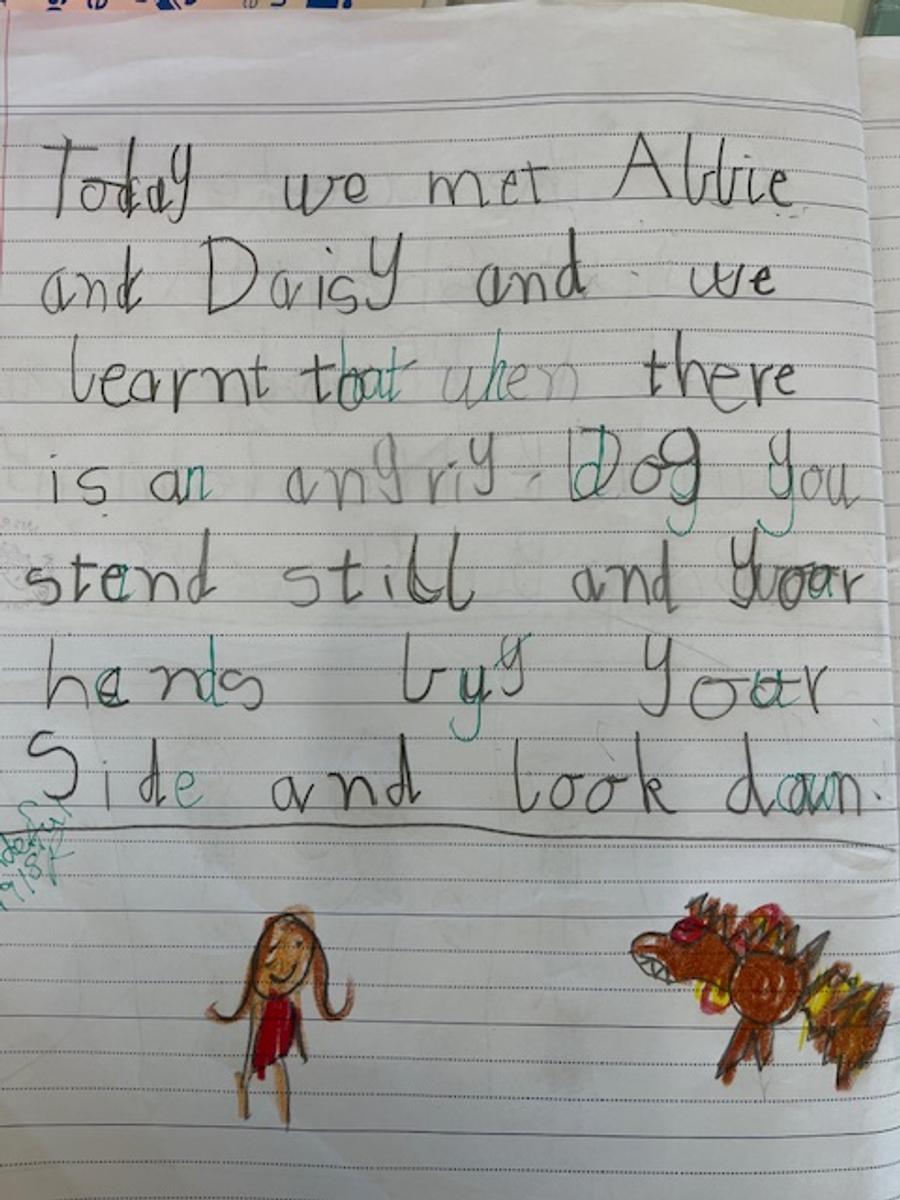 Today we met Allie
and Daisy and we
learnt that when there
is an angriy Dog you
stand still and your
hands by your
Side and look down.